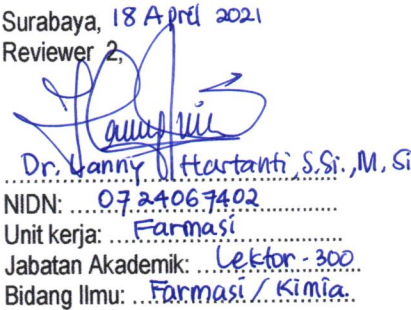 Surabaya, 18 April 2021
Reviewer 2,
Dr. Lanny Hartanti, S.Si., M.Si
NIDN: 0724067402
Unit kerja: Farmasi
Jabatan Akademik: Lektor - 300
Bidang Ilmu: Farmasi / Kimia.